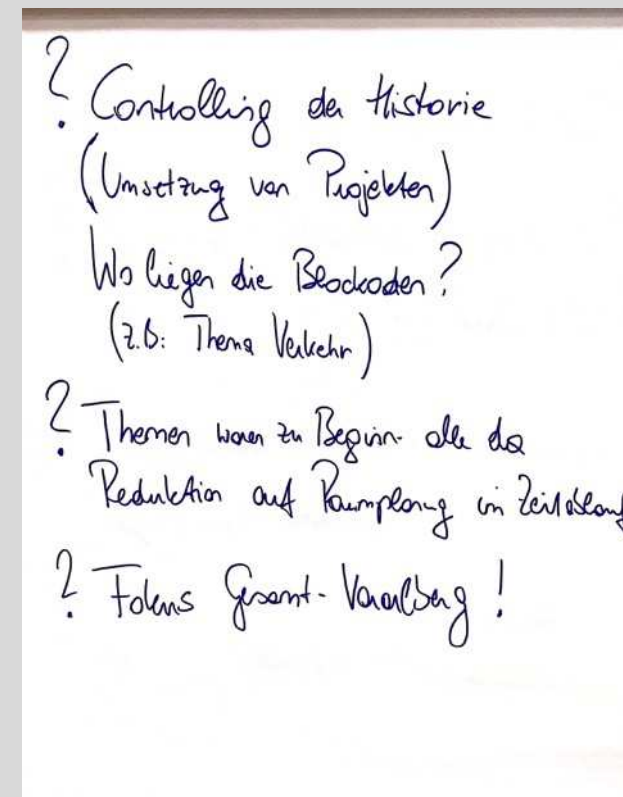 ? Controlling der Historie
(Umsetzung von Projekten)
Wo liegen die Blockaden?
(z.B: Thema Verkehr)
? Themen waren zu Beginn alle da
Reduktion auf Raumplanung im Zeitablauf
? Fokus Gesamt-Vorarlberg!